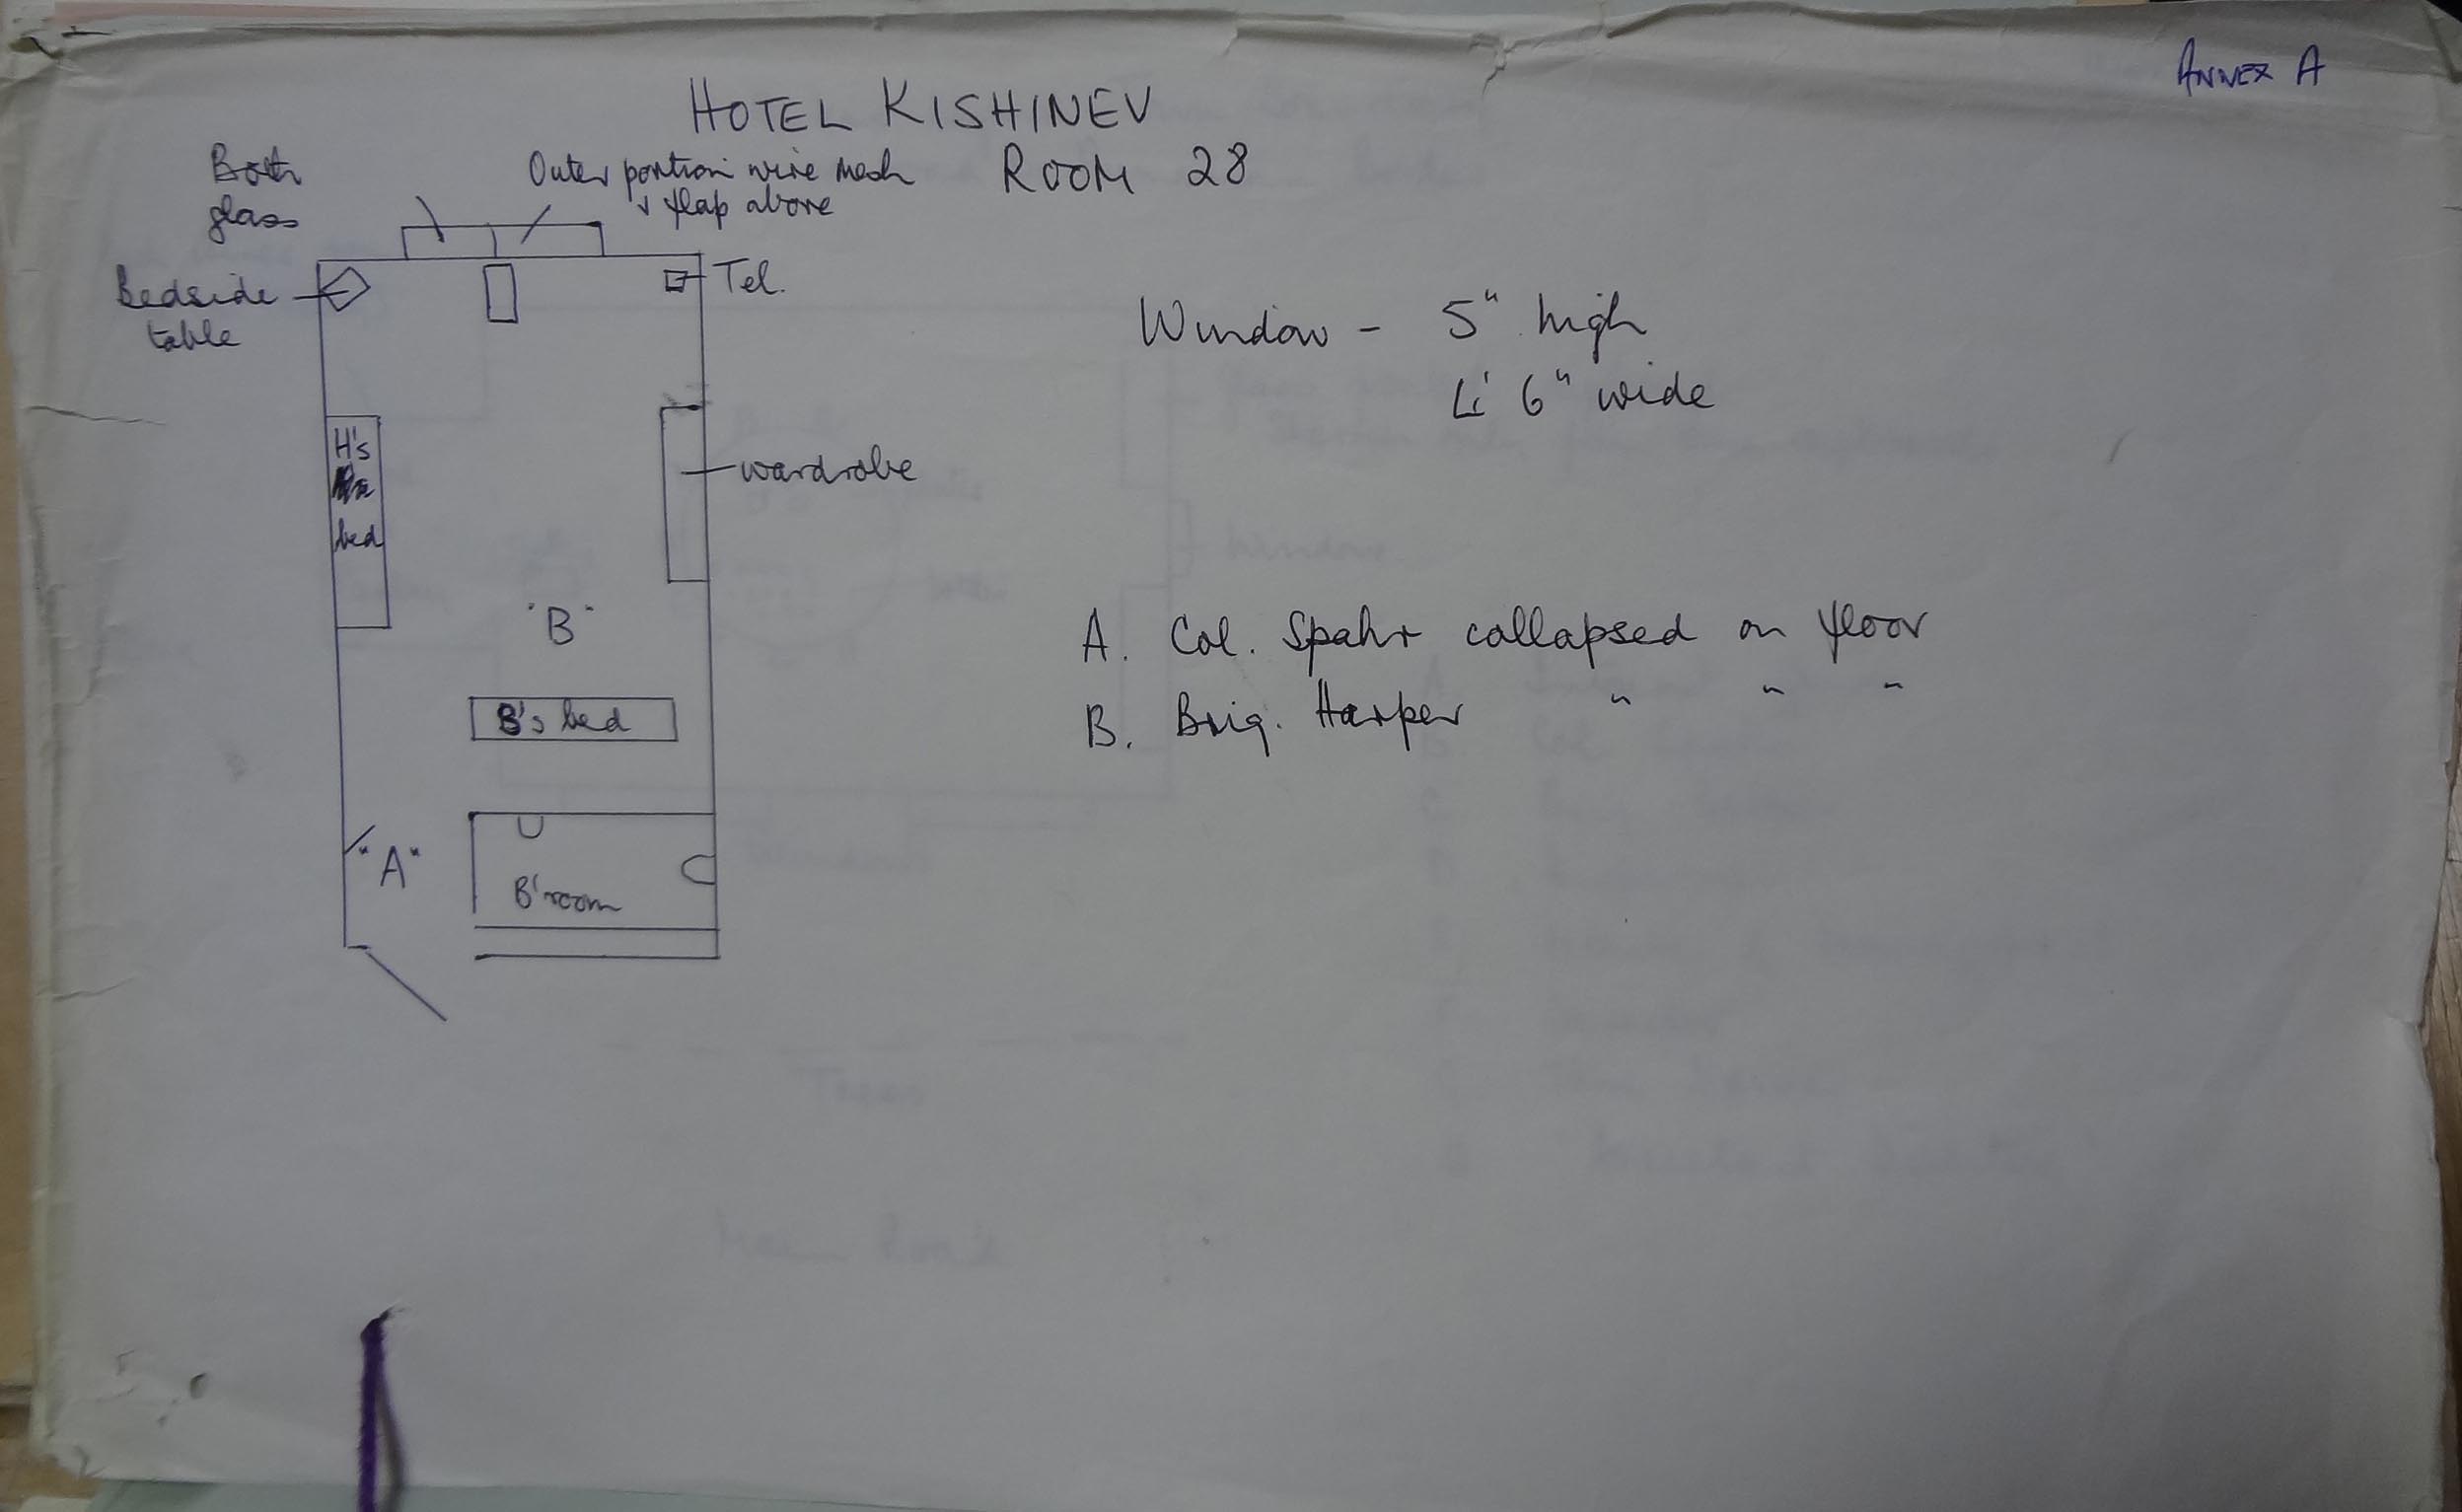 ANNEX A
HOTEL KISHINEV
ROOM 28
Both
glass
Outer portion wire mesh
& flap above
Bedside
table
Tel.
Window - 5" high
4' 6" wide
H's
bed
wardrobe
"B"
A. Col. Spahr collapsed on floor
B's bed
B. Brig. Harper " " "
"A"
B'room